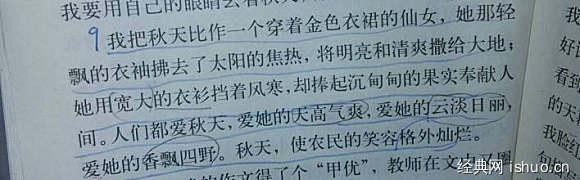 我要用自己的眼睛去看秋天
9我把秋天比作一个穿着金色衣裙的仙女,她那轻
飘的衣袖拂去了太阳的焦热,将明亮和清爽撒给大地;
她用宽大的衣衫挡着风寒,却捧起沉甸甸的果实奉献人
间。人们都爱秋天,爱她的天高气爽,爱她的云淡日丽,
爱她的香飘四野。秋天,使农民的笑容格外灿烂。
的作文得了个“甲优”,教师在文
好
看到
的天
我脸红
经典网 ishuo.cn